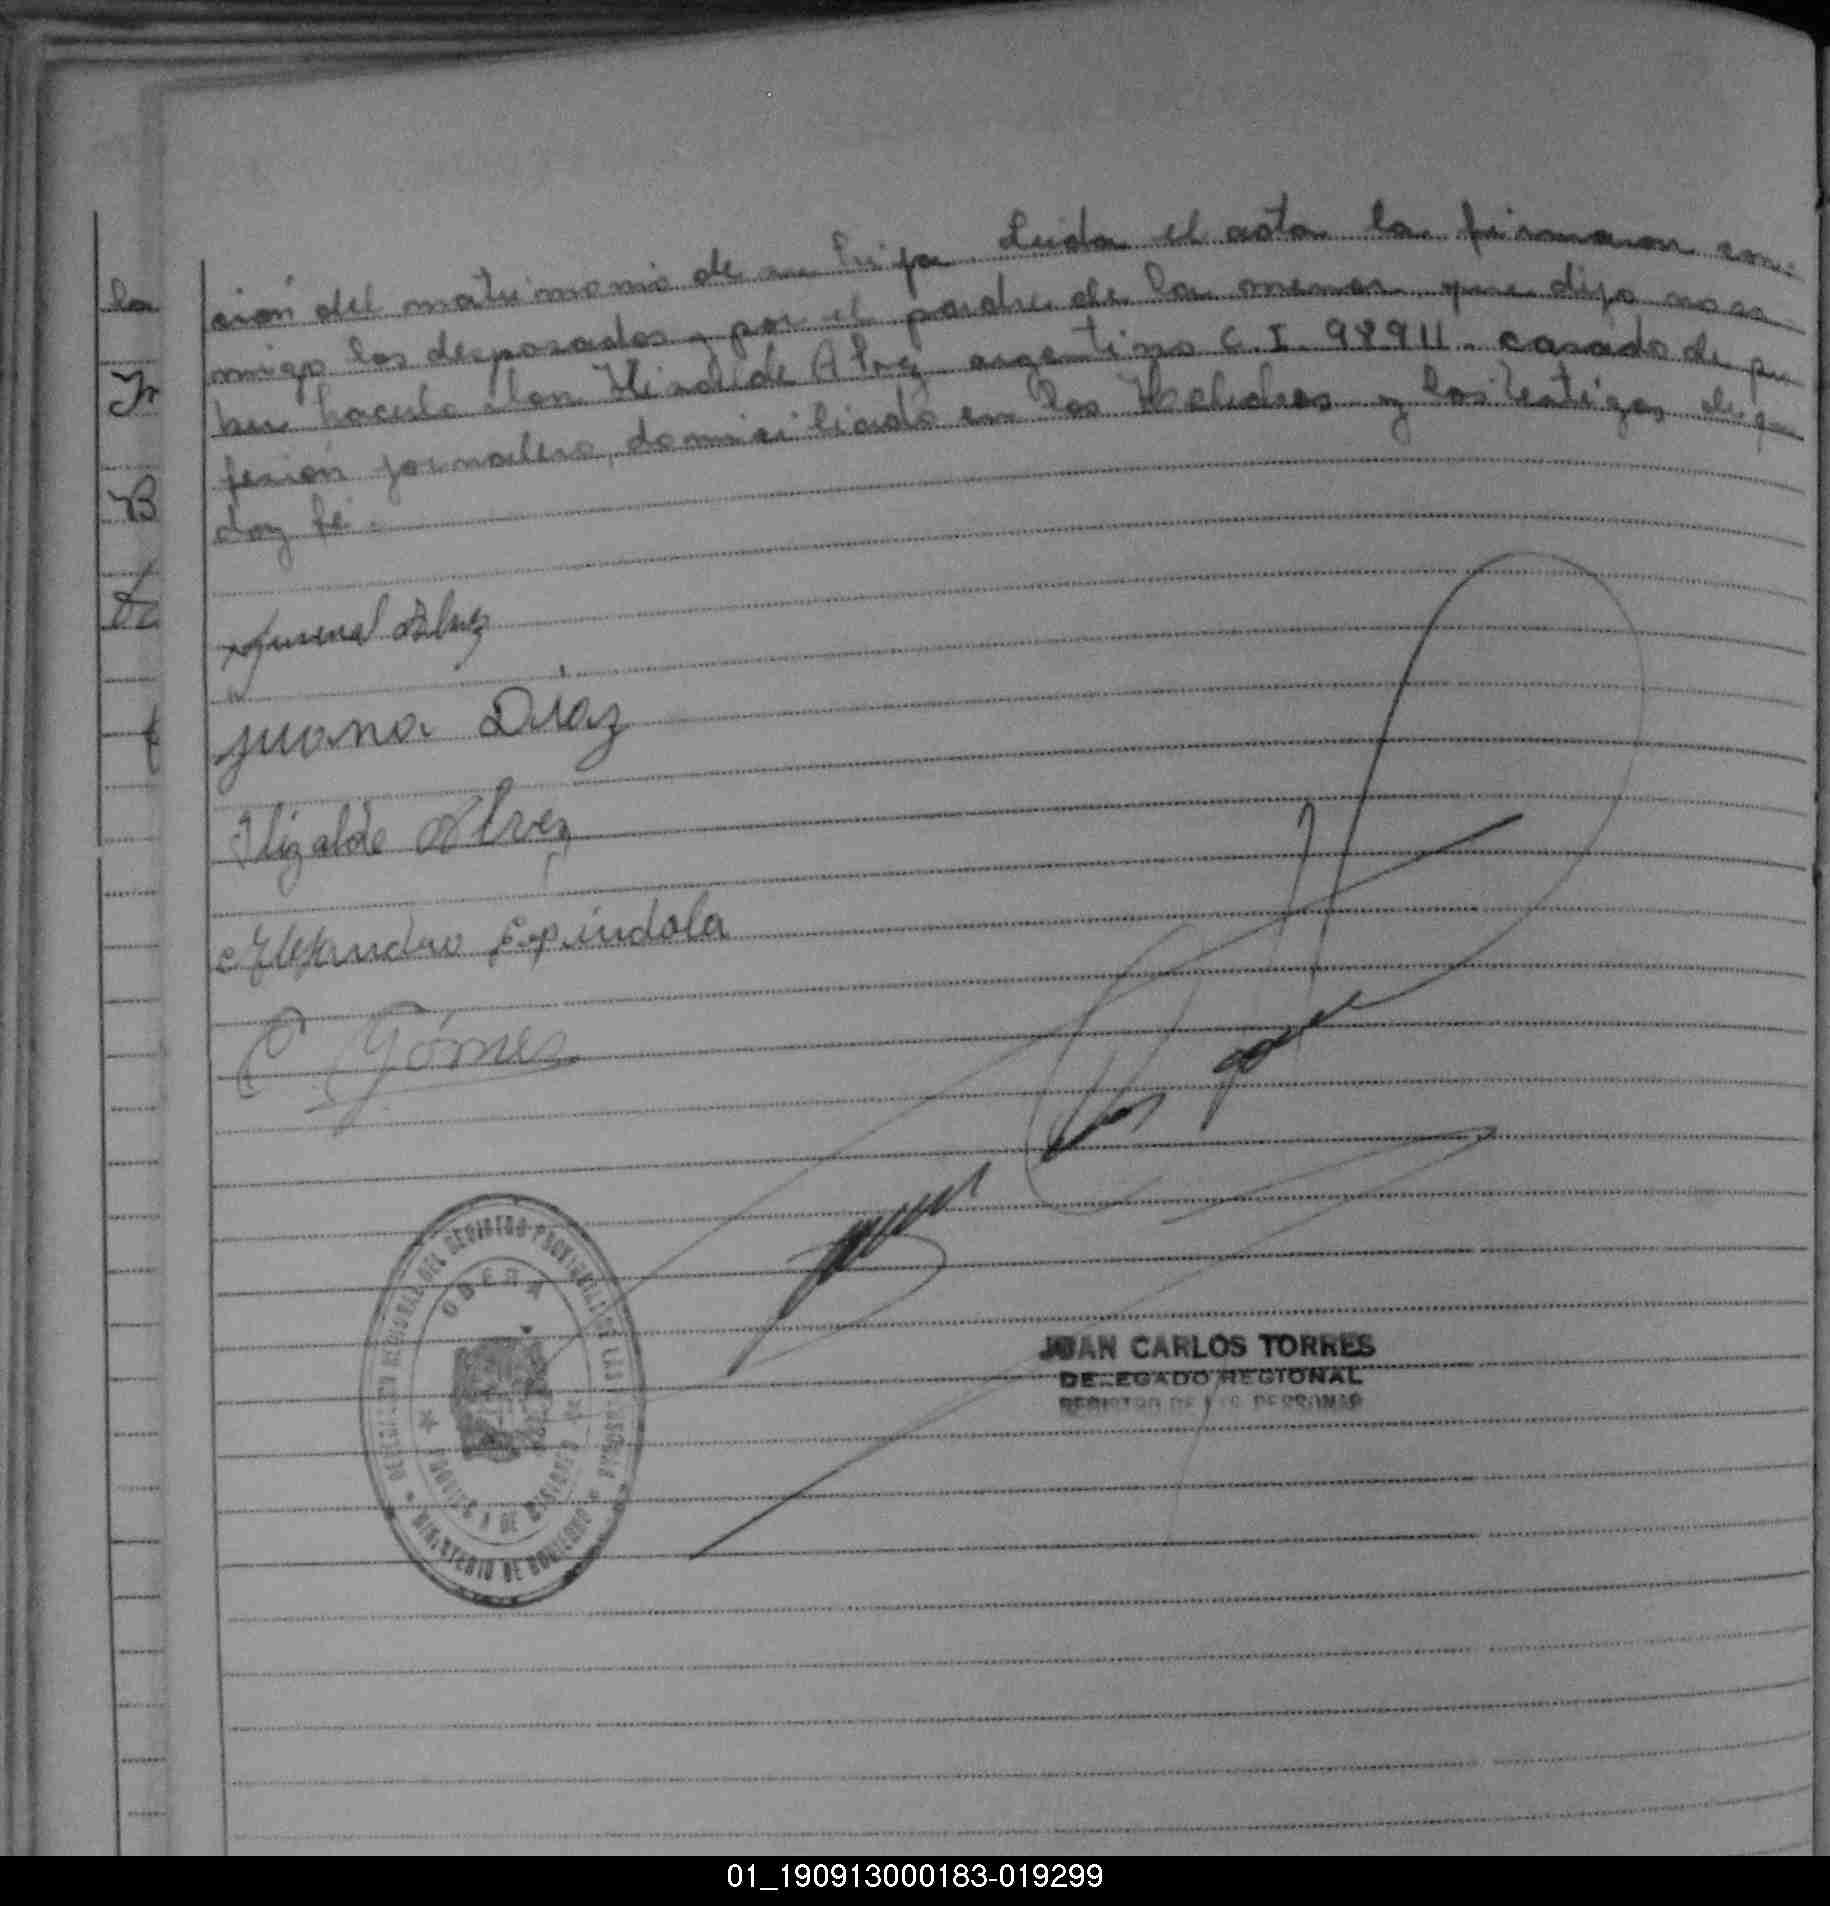 ción del matrimonio de su hija. Leida el acta la firmaron con-
migo los desposados y por el padre de la menor que dijo no sa
ber hacerlo don Hizalde Alvez argentino C.I. 98911. casado de pro
fesión jornalero, domiciliado en los Helechos y los testigos de que
doy fé.
la
B
Alvez
Juana Diaz
Ilizalde Alvez
Alejandro Espíndola
C Gómez
DEL REGISTRO PROVINCIAL DE LAS PERSONAS
OBERA
MINISTERIO DE GOBIERNO
JUAN CARLOS TORRES
DELEGADO REGIONAL
REGISTRO DE LAS PERSONAS
01_190913000183-019299